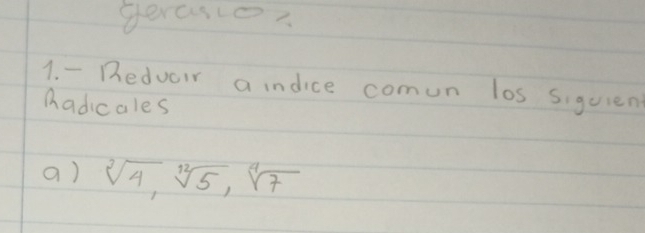 1.- Reducir a indice comun los siguien
Radicales
a) ∛4, ¹²√5, ⁴√7